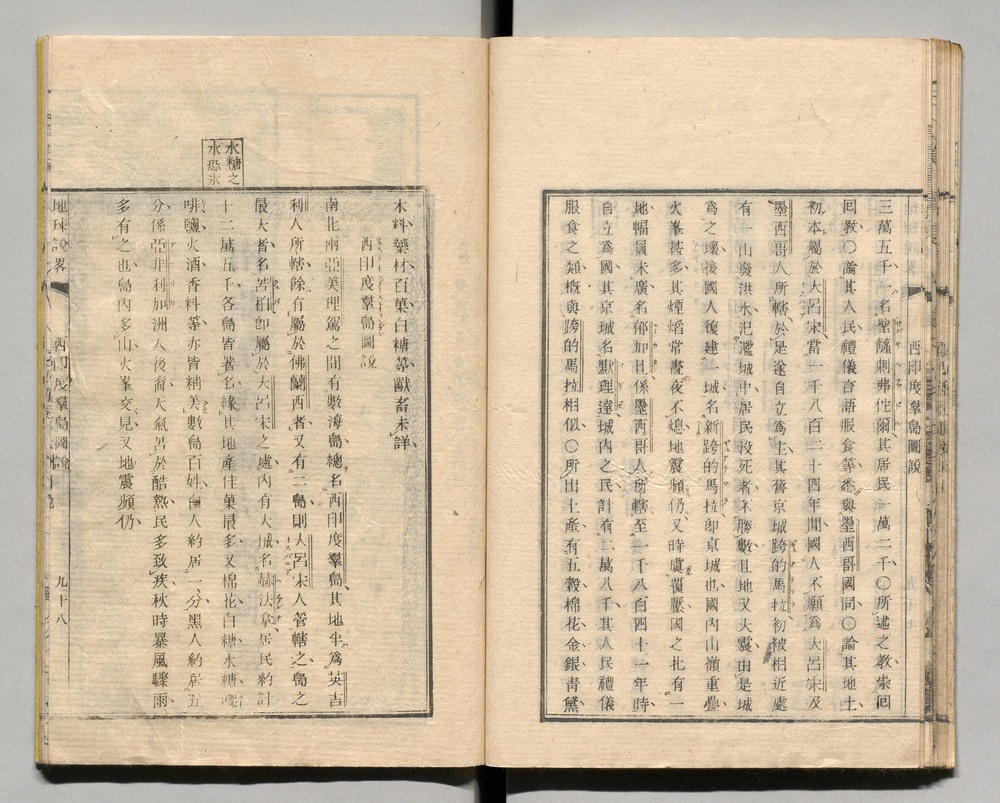 三萬五千、名聖薩刺弗佗爾其居民一萬二千〇所述之教崇囘
囘教〇論其人民禮儀言語服食等悉與墨西哥國同〇論其地土
初本屬於大呂宋當一千八百二十四年間國人不願爲大呂宋及
墨西哥人所轄於是遂自立爲主其舊京城跨的馬拉初被相近處
有一山發洪水汜濫城中居民没死者不勝數且地又大震由是城
爲之壞後國人復建一城名新跨的馬拉卽京城也國內山嶺重疊
火峯甚多其煙焰常晝夜不熄地震頻仍又時虞覆壓國之北有一
地幅員未廣名郁加且係墨西哥人所轄至一千八百四十一年時
自立爲國其京城名默理達城內之民計有二萬八千其人民禮儀
服食之類槪與跨的馬拉相似〇所出土產有五穀棉花金銀青黛
西印度羣島圖說
木料藥材百菓白糖等獸畜未詳
西印度羣島圖說
南北兩亞美理駕之間有數海島總名西印度羣島其地半爲英吉
利人所轄餘有屬於佛蘭西者又有二島則大呂宋人管轄之島之
最大者名苦柏卽屬於大呂宋之處內有大城名赫法拿居民約計
十二萬五千各島皆著名緣其地產住菓最多又棉花白糖木糖
啡鹽火酒香料等亦皆精美數島百姓白人約居一分黑人約居五
分係亞非利加洲人後裔天氣苦於酷熱民多致疾秋時暴風驟雨
多有之也島內多山火峯交見又地震頻仍
糖之
水恐氷
地球說畧
西印度羣島圖說
九十八